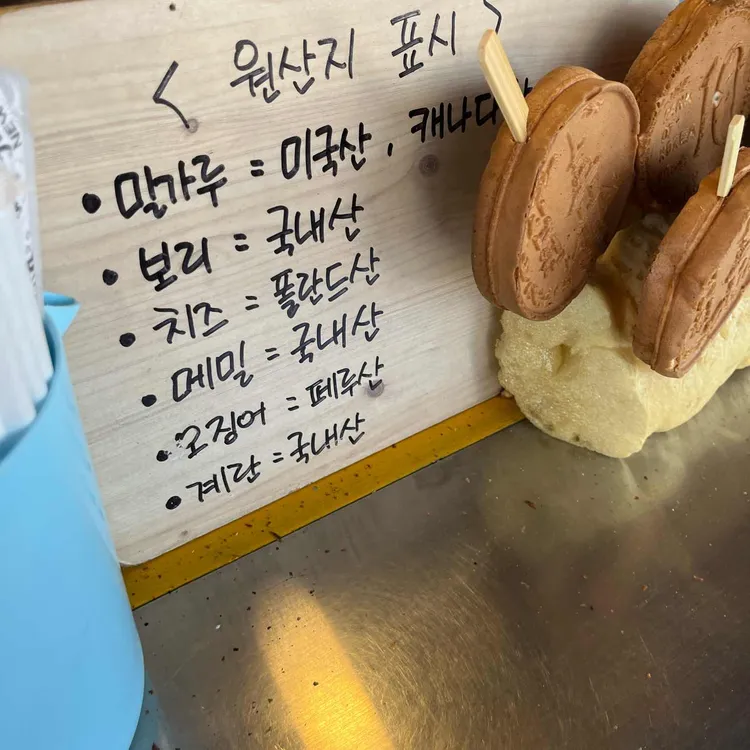 < 원산지 표시 >
• 밀가루 = 미국산, 캐나다산
• 보리 = 국내산
• 치즈 = 폴란드산
• 메밀 = 국내산
• 오징어 = 페루산
• 계란 = 국내산
10
KOREA
NEW